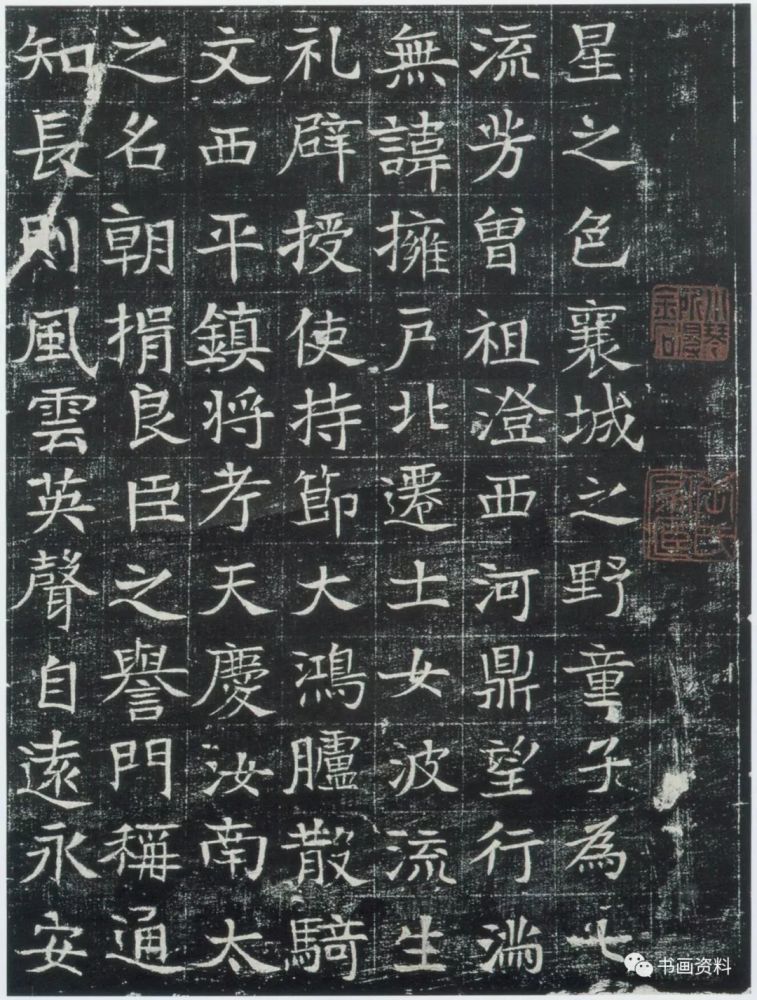 星之色襄城之野童子為七
流芳曾祖澄西河鼎望行滿
無諱擁戶北遷士女波流生
礼辟授使持節大鴻臚散騎
文西平鎮将考天慶汝南太
之名朝捐良臣之譽門稱通
知長則風雲英聲自遠永安
书画资料